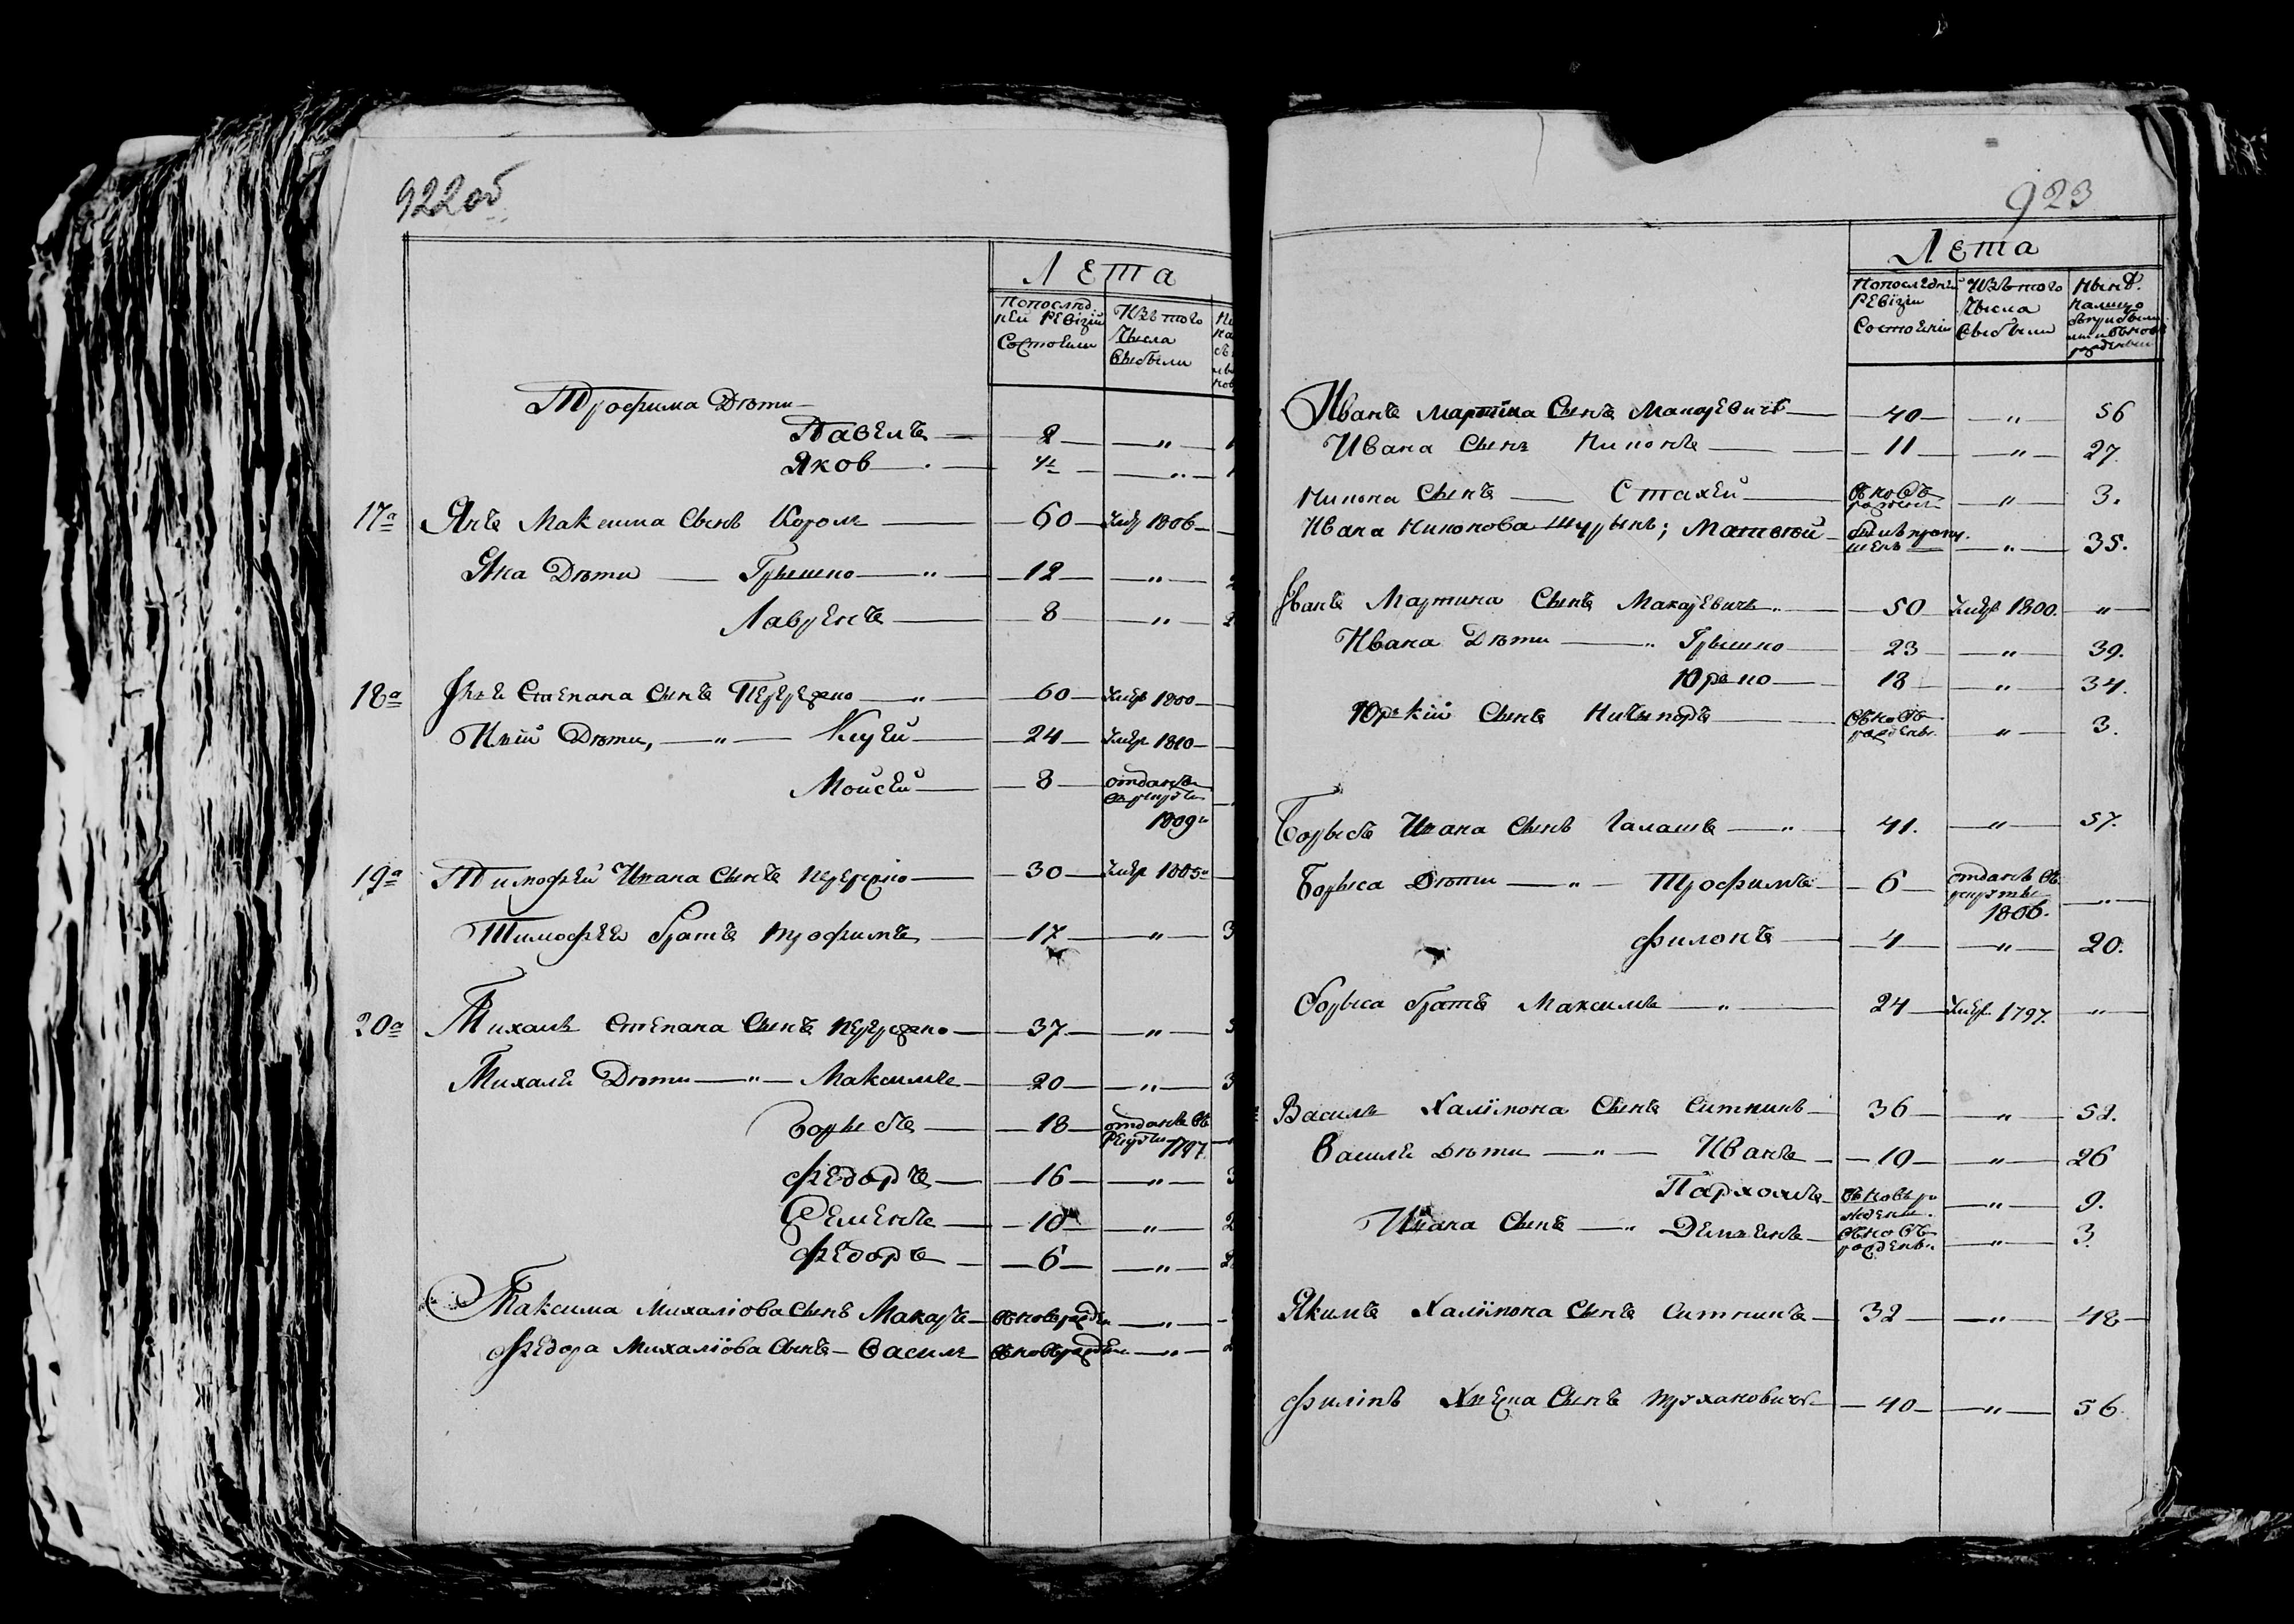 922об
Лета
Попослѣд
ней Ревізіи
Состояли
Изъ того
Числа
выбыли
Трофима Дѣти
Павелъ — 2 — „ —
Яков — „ —
17а Янъ Максима Сынъ Король — 60 — Умер 1806 —
Яна Дѣти — Грышко — „ — 12 — „ —
Лаврѣнъ — 8 — „ —
18а Степана Сынъ — „ — 60 — Умер 1800 —
Дѣти, — „ — 24 — Умер 1810 —
Мойсей — 8 — отданъ
в рекруты
1809
19а Тимофѣй Ивана Сынъ — 30 — Умер 1805
Тимофѣя братъ Трофимъ — 17 — „ — 3
20а Михалъ Степана Сынъ — 37 — „ —
Михалѣ Дѣти — „ — Максимъ — 20 — „ — 3
Борысъ — 18 — отданъ въ
рекруты 1797
Федоръ — 16 — „ —
Семенъ — 10 — „ — 2
Федоръ — 6 — „ — 2
Максима Михалiова Сынъ Макаръ — „ —
Федора Михалiова Сынъ — Василь — „ —
923
Лета
Попоследней
Ревізіи
Состояли
Изъ того
Числа
выбыли
Нынѣ
налицо
Иванъ Мартина Сынъ Макаревичъ — 40 — „ — 56
Ивана Сынъ Никонъ — 11 — „ — 27
Никона Сынъ — Стахей — въ новъ
рожденъ — „ — 3.
Ивана Никонова Шурынъ; Матвѣй — — „ — 35.
Иванъ Мартина Сынъ Макаревичъ — 50 — Умер 1800. „ —
Ивана Дѣти — „ Грышко — 23 — „ — 39.
Юрко — 18 — „ — 34.
Юркій Сынъ Ничыпоръ — въ новъ
рожденъ. — „ — 3.
Борысъ Ивана Сынъ Галашъ — „ — 41. — „ — 57.
Борыса Дѣти — „ — Трофимъ — 6 — отданъ въ
рекруты
1806. — „ —
Филонъ — 4 — „ — 20.
Борыса братъ Максимъ — „ — 24 — Умер 1797. — „ —
Василь Халiмона Сынъ Ситникъ — 36 — „ — 52.
Василѣ Дѣти — „ — Иванъ — 10 — „ — 26
Пархомъ — въ новъ ро
жденъ. — „ — 9.
Ивана Сынъ — „ Демѣнъ — въ новъ
рожденъ — „ — 3.
Якимъ Халiмона Сынъ Ситникъ — 32 — „ — 48 —
Филiпъ Сынъ — 40 — „ — 56